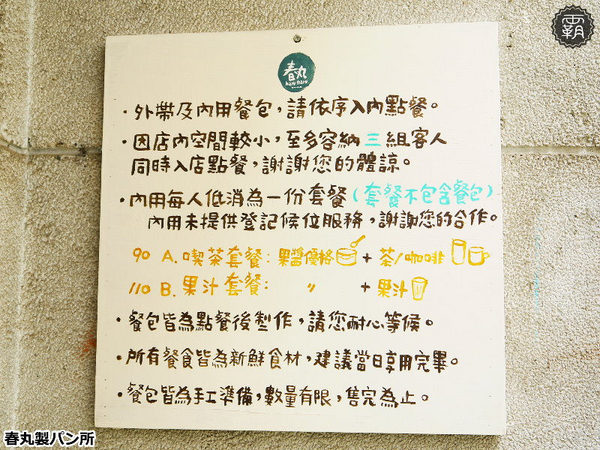 霸
春丸
・外帶及內用餐包，請依序入內點餐。
・因店內空間較小，至多容納三組客人
同時入店點餐，謝謝您的體諒。
・內用每人低消為一份套餐(套餐不包含餐包)
內用未提供登記候位服務，謝謝您的合作。
90 A. 喫茶套餐：果醬優格 + 茶/咖啡
110 B. 果汁套餐： 〃 + 果汁
・餐包皆為點餐後製作，請您耐心等候。
・所有餐食皆為新鮮食材，建議當日享用完畢。
・餐包皆為手工準備，數量有限，售完為止。
春丸製パン所